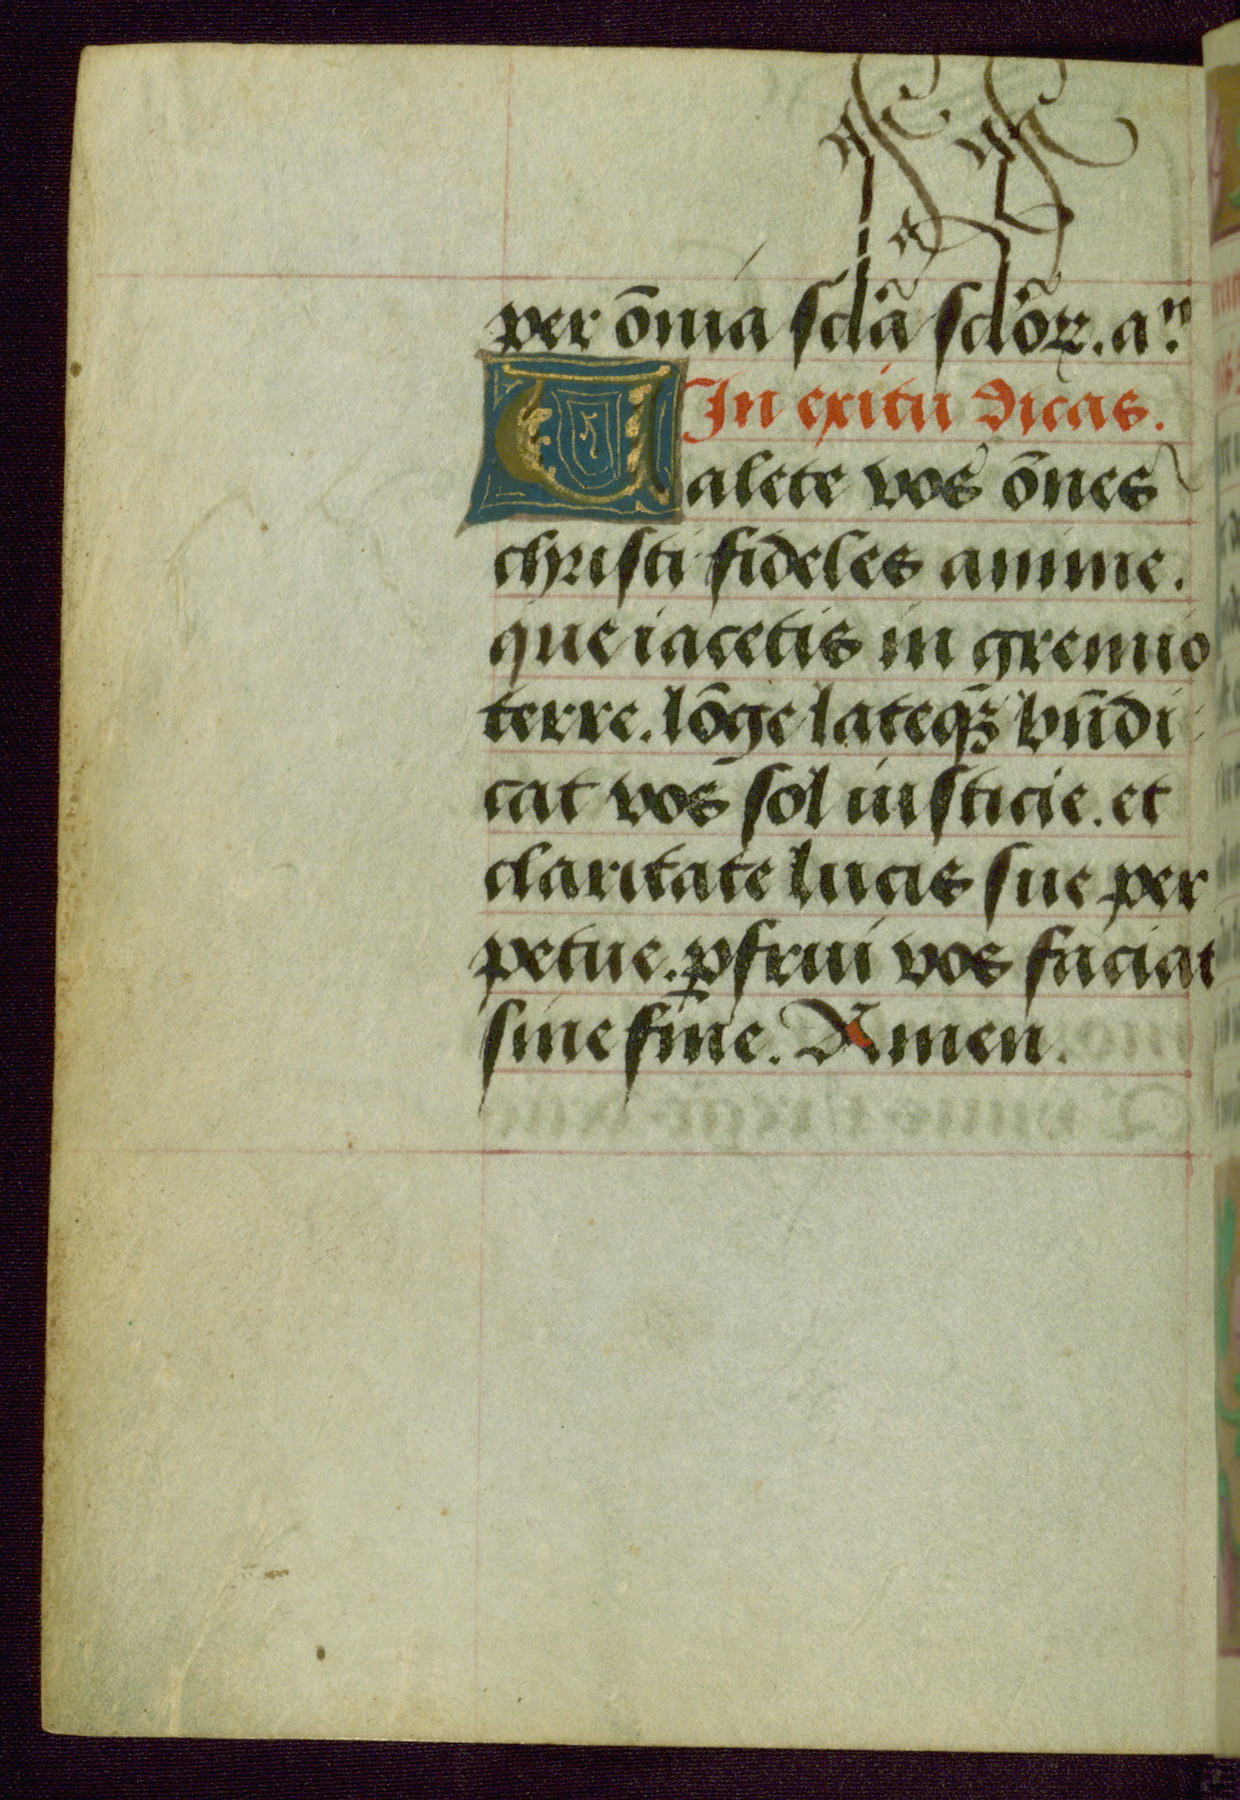 per o̅nia sclã sclõꝝ. aⁿ.
In exitu dicas.
Ualete vos o̅nes
christi fideles anime.
que iacetis in gremio
terre. lo̅ge lateqꝫ bn̅di
cat vos sol iusticie. et
claritate lucis sue per
petue. ꝑfrui vos faciat
sine fine. Amen.